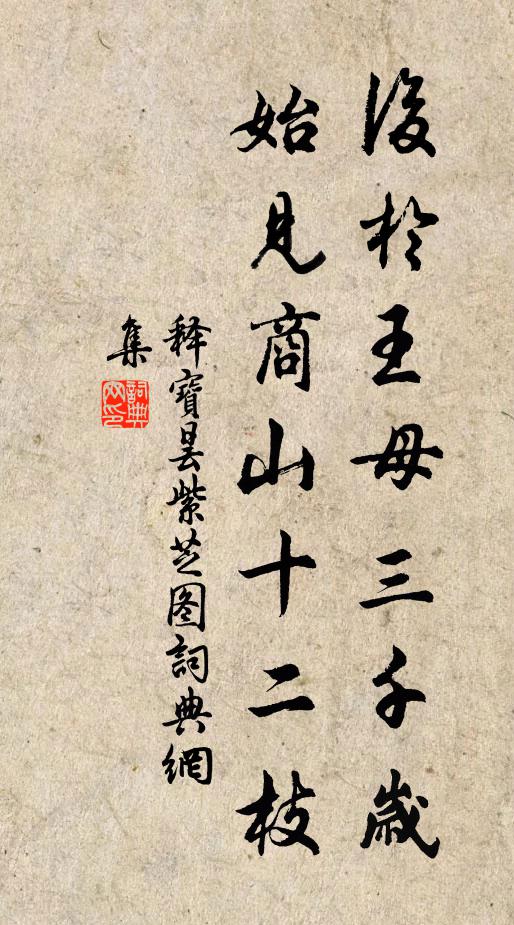 後於王母三千歲
始見商山十二枝
释寶曇紫芝图詞典網
集
詞典
网印